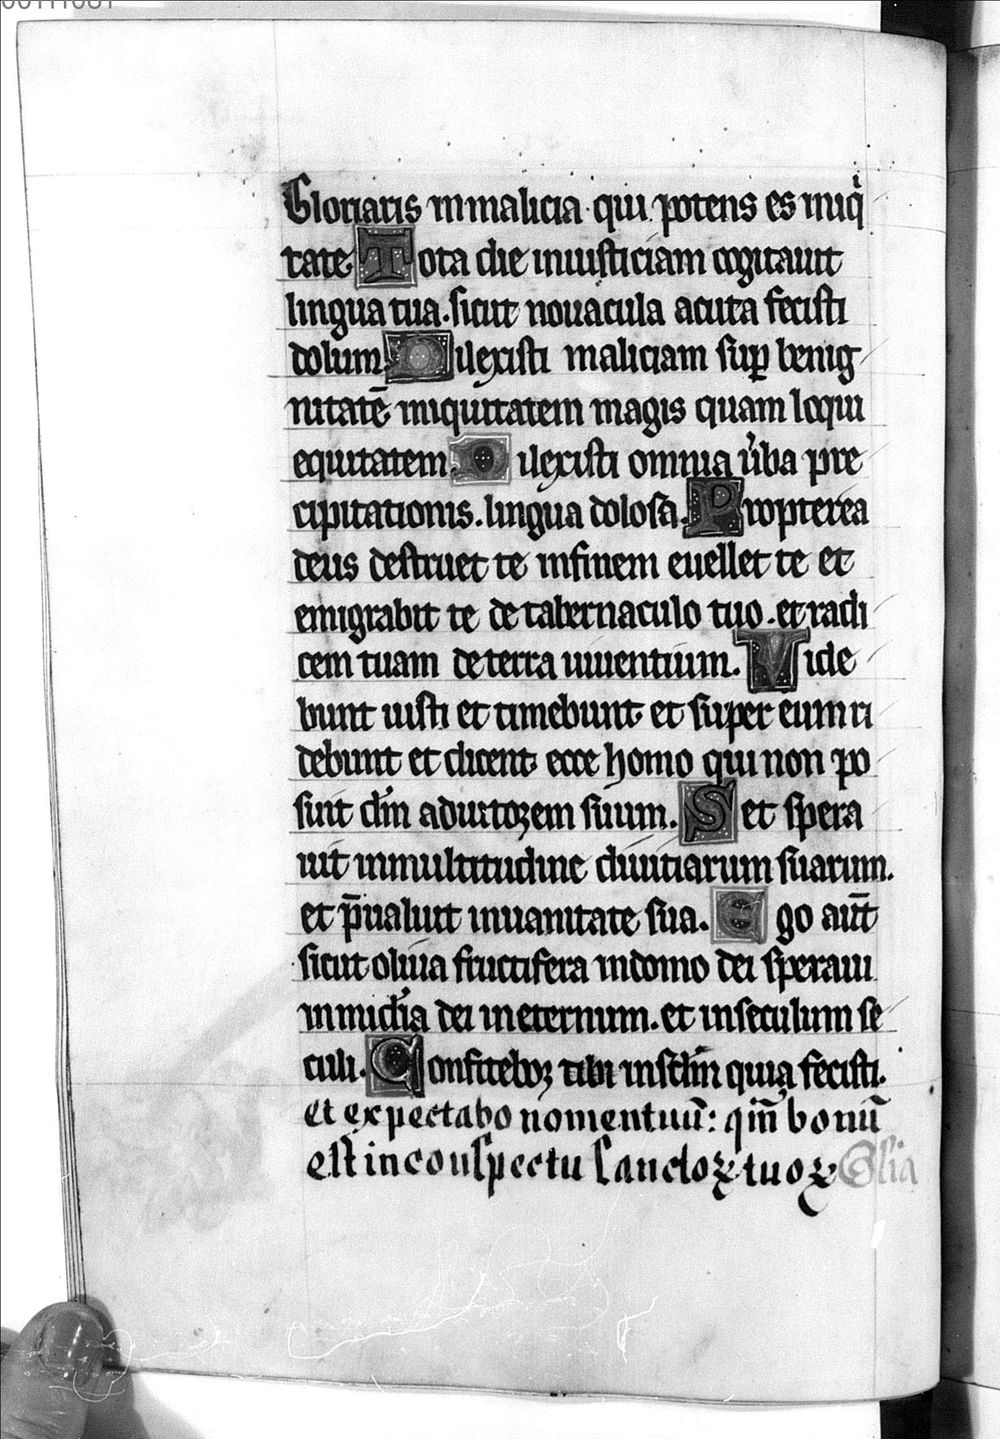 00111081
Gloriaris in malicia qui potens es iniqͥ
tate Tota die iniusticiam cogitauit
lingua tua. sicut nouacula acuta fecisti
dolum. Dilexisti maliciam suꝑ benig
nitatē iniquitatem magis quam loqui
equitatem. Dilexisti omnia u̓ba pre
cipitationis. lingua dolosa. Propterea
deus destruet te infinem euellet te et
emigrabit te de tabernaculo tuo. et radi
cem tuam de terra uiuentium. Vide
bunt iusti et timebunt et super eum ri
debunt et dicent ecce homo qui non po
suit dm̄ adiutoꝛem suum. Set spera
uit inmultitudine diuitiarum suarum.
et p̄ualuit inuanitate sua. Ego aut̄
sicut oliua fructifera indomo dei speraui
in mi̅a dei ineternum. et inseculum se
culi. Confiteboꝛ tibi insclm̄ quia fecisti.
et expectabo nomentuū: qm̄ bonū
est inconspectu sanctoꝝ tuoꝝ Glia